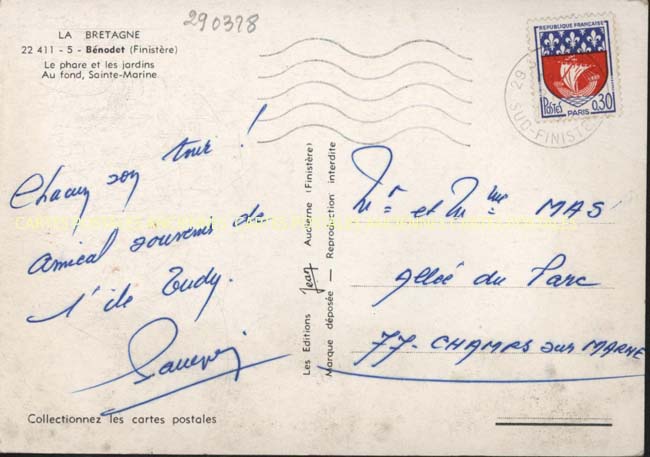 LA BRETAGNE
22 411 - 5 - Bénodet (Finistère)
Le phare et les jardins
Au fond, Sainte-Marine
290378
RÉPUBLIQUE FRANÇAISE
POSTES
PARIS
0,30
29
SUD-FINIST
Chacun son tour !
amical souvenir de
l'île Tudy.
Les Editions Jean Audierne (Finistère)
Marque déposée — Reproduction interdite
Mr et Mme MAS
Allée du Parc
77-CHAMPS sur MARNE
Collectionnez les cartes postales